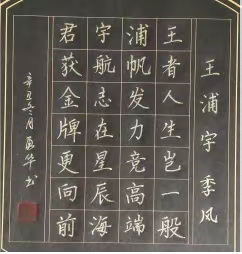 王浦宇季凤
王者人生岂一般
浦帆发力竞高端
宇航志在星辰海
君获金牌更向前
辛丑冬月
书